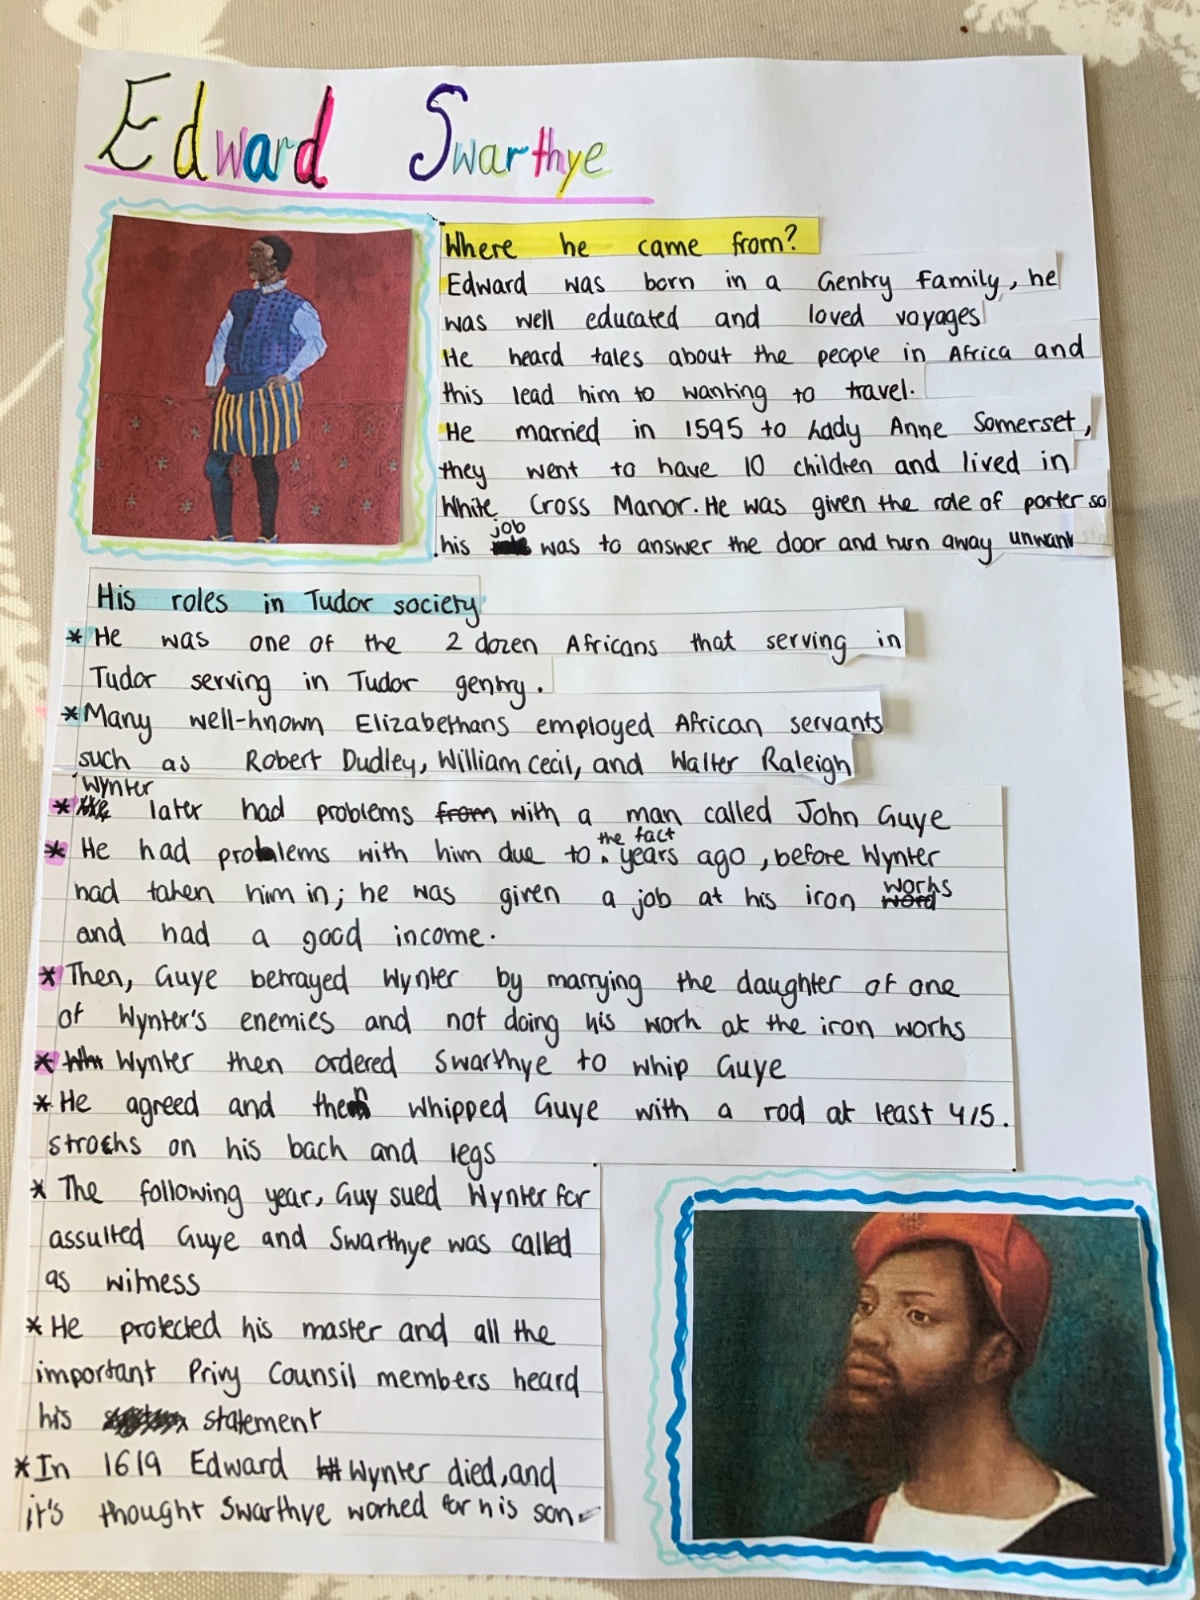 Edward Swarthye
Where he came from?
Edward was born in a Gentry Family, he
was well educated and loved voyages
He heard tales about the people in Africa and
this lead him to wanting to travel.
He married in 1595 to Lady Anne Somerset,
they went to have 10 children and lived in
White Cross Manor. He was given the role of porter so
job
his was to answer the door and turn away unwant
His roles in Tudor society
* He was one of the 2 dozen Africans that serving in
Tudor serving in Tudor gentry.
* Many well-known Elizabethans employed African servants
such as Robert Dudley, William cecil, and Walter Raleigh
Wynter
* later had problems from with a man called John Guye
the fact
* He had problems with him due to. years ago, before Wynter
had taken him in; he was given a job at his iron works
and had a good income.
* Then, Guye betrayed Wynter by marrying the daughter of one
of Wynter's enemies and not doing his work at the iron works
* Wynter then ordered Swarthye to whip Guye
* He agreed and then whipped Guye with a rod at least 4/5.
strocks on his back and legs
* The following year, Guy sued Wynter for
assulted Guye and Swarthye was called
as witness
* He protected his master and all the
important Privy Counsil members heard
his statement
* In 1619 Edward Wynter died, and
it's thought Swarthye worked for his son